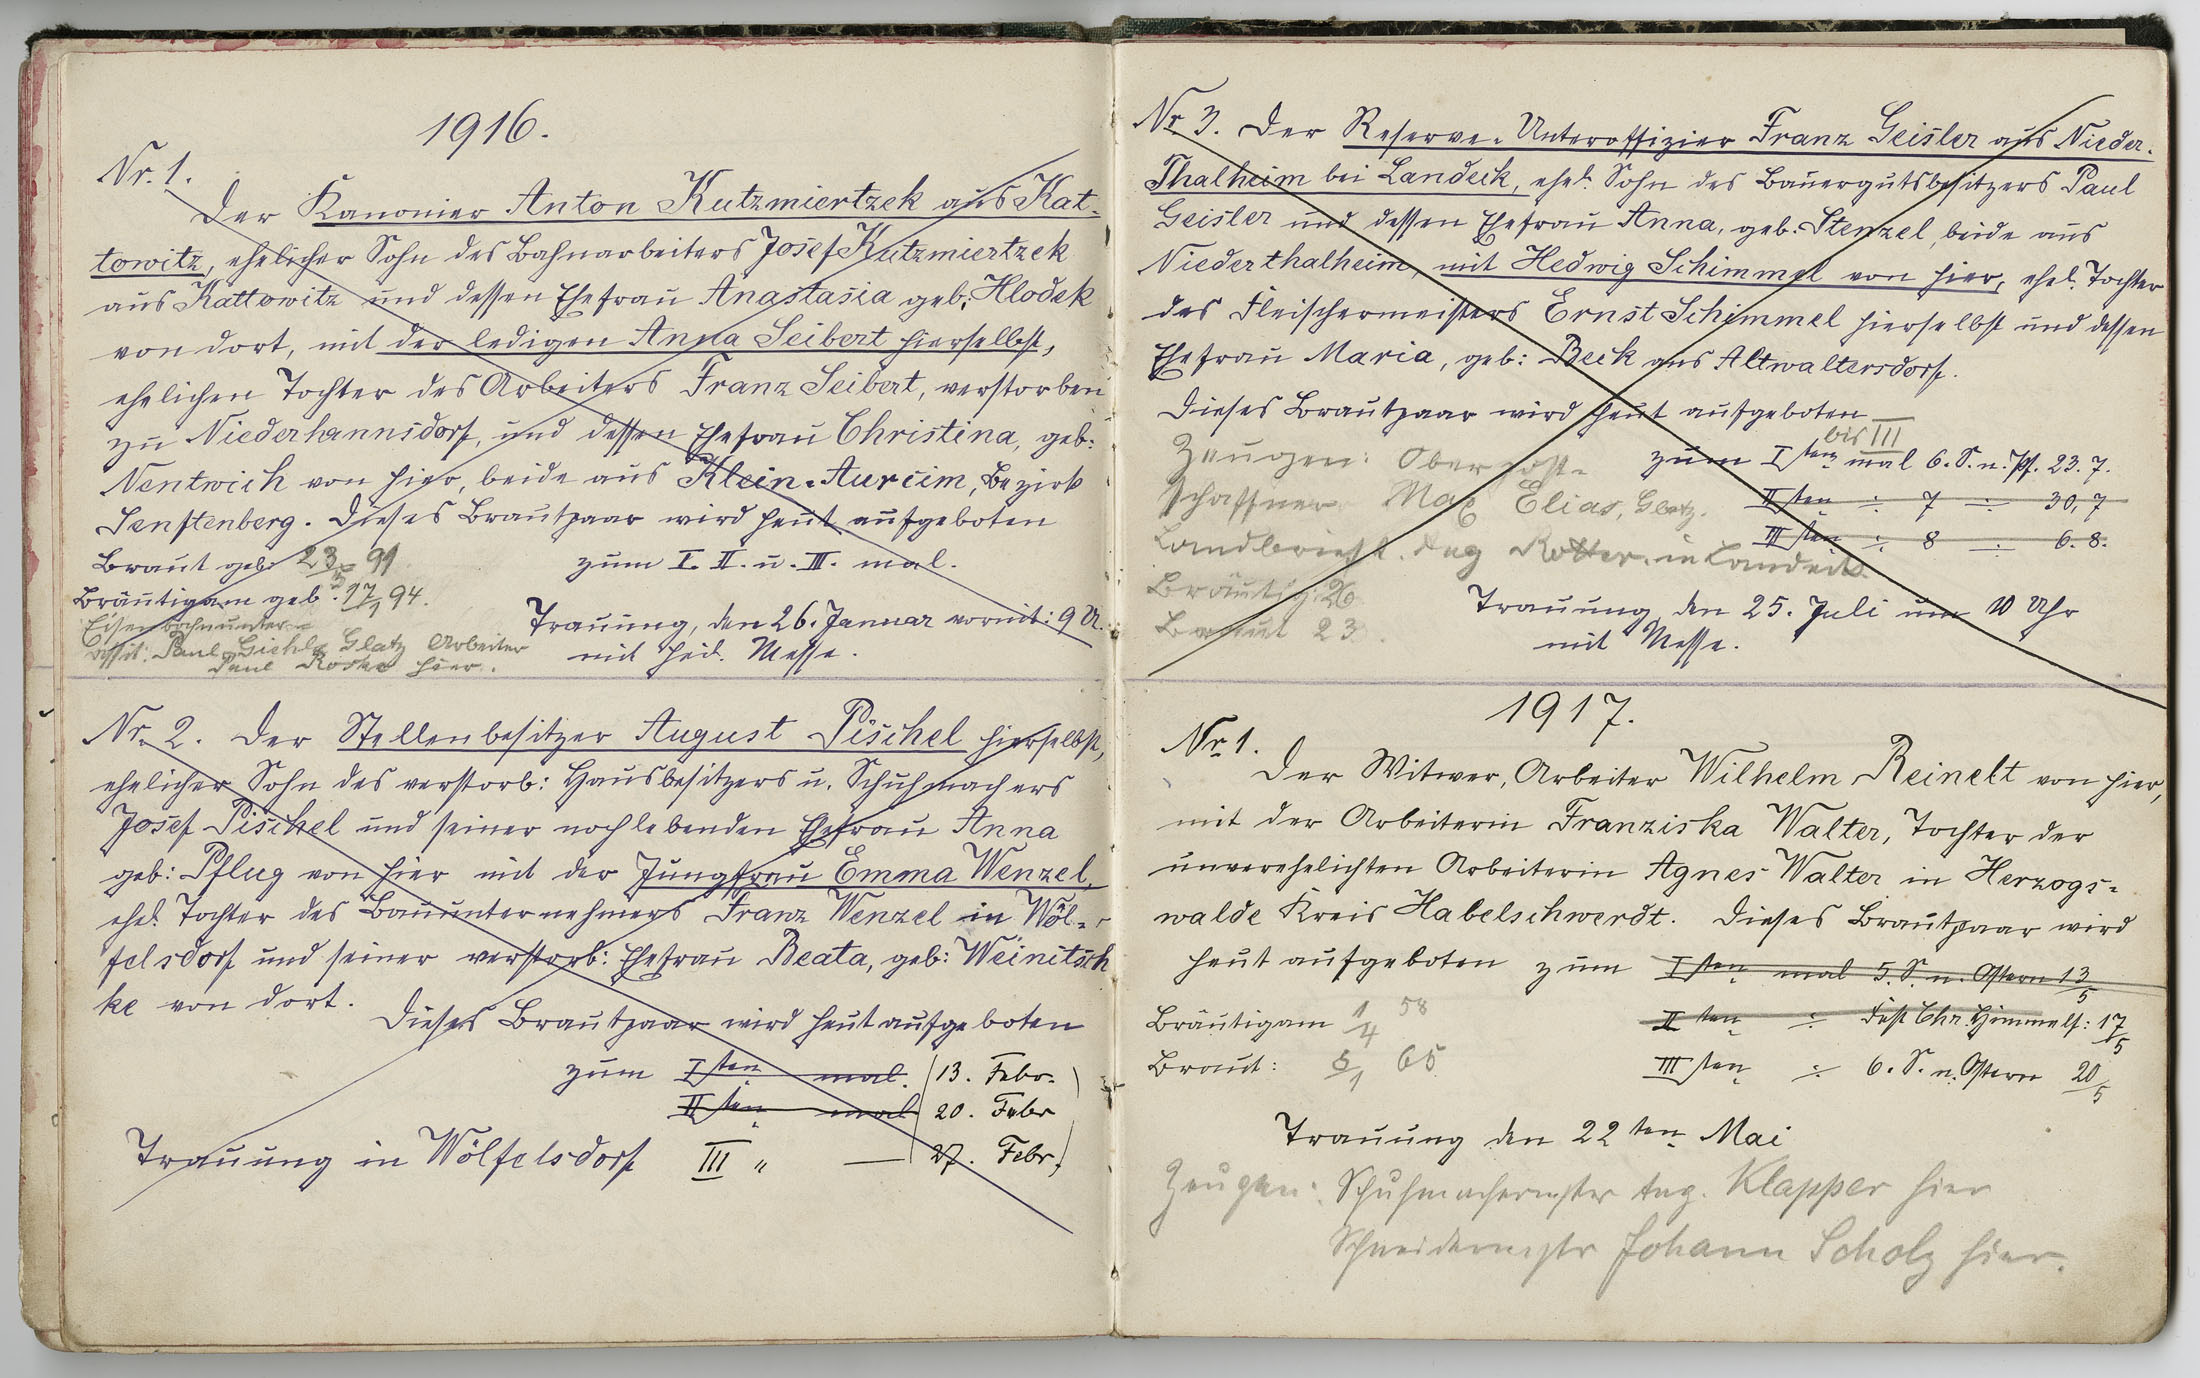 1916.
Nr. 1.
Der Kanonier Anton Kutzmiertzek aus Kat-
towitz, ehelicher Sohn des Bahnarbeiters Josef Kutzmiertzek
aus Kattowitz und dessen Ehefrau Anastasia geb: Hlodek
von dort, mit der ledigen Anna Seibert hierselbst,
ehelichen Tochter des Arbeiters Franz Seibert, verstorben
zu Niederhannsdorf, und dessen Ehefrau Christina, geb:
Nentwich von hier, beide aus Klein-Aurcim, Bezirk
Senftenberg. Dieses Brautpaar wird heut aufgeboten
Braut geb: 23/5 91
zum I. II. u. III. mal.
Bräutigam geb: 17/1 94.
Trauung, den 26. Januar vormit: 9 U.
mit heil. Messe.
Eisenbahnunter-
assit: Paul Giehl Glatz Arbeiter
Paul hier.
Nr. 2. Der Stellenbesitzer August Pischel hierselbst,
ehelicher Sohn des verstorb: Hausbesitzers u. Schuhmachers
Josef Pischel und seiner noch lebenden Ehefrau Anna
geb: Pflug von hier mit der Jungfrau Emma Wenzel,
ehel. Tochter des Bauunternehmers Franz Wenzel in Wöl-
felsdorf und seiner verstorb: Ehefrau Beata, geb: Weinitsch
ke von dort.
Dieses Brautpaar wird heut aufgeboten
zum Isten mal. 13. Febr.
IIten mal 20. Febr
Trauung in Wölfelsdorf III " — 27. Febr.
Nr 3. Der Reserve-Unteroffizier Franz Geisler aus Nieder-
Thalheim bei Landeck, ehel. Sohn des Bauergutsbesitzers Paul
Geisler und dessen Ehefrau Anna, geb: Stenzel, beide aus
Niederthalheim, mit Hedwig Schimmel von hier, ehel. Tochter
des Fleischermeisters Ernst Schimmel hierselbst und dessen
Ehefrau Maria, geb: Beck aus Altwaltersdorf.
Dieses Brautpaar wird heut aufgeboten
bis III
zum Iten mal 6. S. n. Pf. 23. 7.
IIten ÷ 7 ÷ 30, 7
IIIten ÷ 8 ÷ 6. 8.
Zeugen: Oberpost-
schaffner Max Elias, Glatz.
Landbrieft. Aug Rotter in Landeck
Bräutig: 26
Braut 23.
Trauung den 25. Juli um 10 Uhr
mit Messe.
1917.
Nr 1.
Der Witwer, Arbeiter Wilhelm Reinelt von hier,
mit der Arbeiterin Franziska Walter, Tochter der
unverehelichten Arbeiterin Agnes Walter in Herzogs-
walde Kreis Habelschwerdt. Dieses Brautpaar wird
heut aufgeboten zum Iten mal 5. S. n. Ostern 13/5
IIten ÷ Fest Chr. Himmelf: 17/5
IIIten ÷ 6. S. n. Ostern 20/5
Bräutigam 1/4 58
Braut: 5/1 65
Trauung den 22ten Mai
Zeugen: Schuhmachermstr Aug. Klapper hier
Schneidermstr Johann Scholz hier.